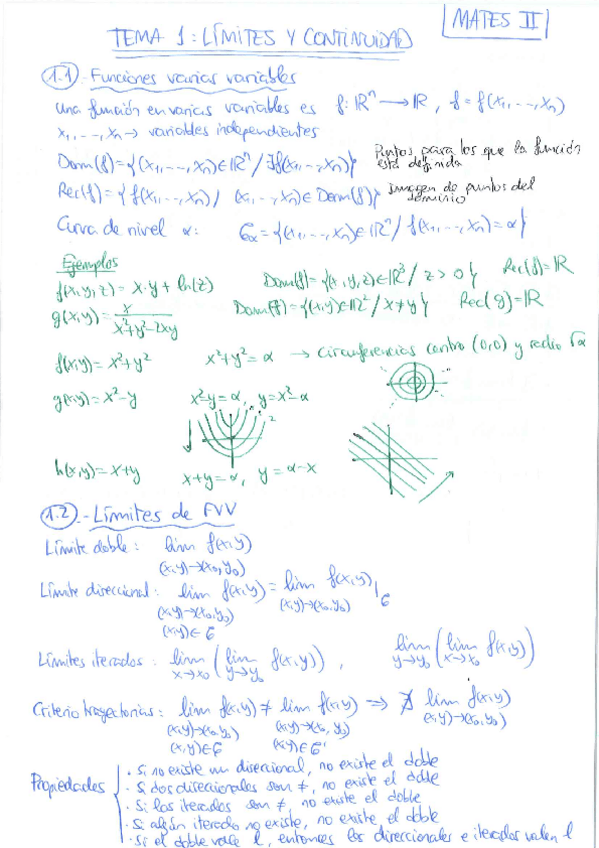 MATES II
TEMA 1: LÍMITES Y CONTINUIDAD
1.1 - Funciones varias variables
Una función en varias variables es f: ℝⁿ → ℝ, f = f(x₁, ..., xₙ)
x₁, ..., xₙ → variables independientes
Dom(f) = {(x₁, ..., xₙ) ∈ ℝⁿ / ∃f(x₁, ..., xₙ)} Puntos para los que la función está definida
Rec(f) = {f(x₁, ..., xₙ) / (x₁, ..., xₙ) ∈ Dom(f)} Imagen de puntos del dominio
Curva de nivel α: Cα = {(x₁, ..., xₙ) ∈ ℝⁿ / f(x₁, ..., xₙ) = α}
Ejemplos
f(x,y,z) = x·y + ln(z) Dom(f) = {(x,y,z) ∈ ℝ³ / z > 0} Rec(f) = ℝ
g(x,y) = x / (x²+y²-2xy) Dom(f) = {(x,y) ∈ ℝ² / x ≠ y} Rec(g) = ℝ
f(x,y) = x²+y² x²+y² = α → circunferencias centro (0,0) y radio √α
g(x,y) = x²-y x²-y = α, y = x²-α
2
h(x,y) = x+y x+y = α, y = α-x
1.2 - Límites de FVV
Límite doble: lim f(x,y)
(x,y)→(x₀,y₀)
Límite direccional: lim f(x,y) = lim f(x,y)|C
(x,y)→(x₀,y₀) (x,y)→(x₀,y₀)
(x,y)∈C
Límites iterados: lim (lim f(x,y)), lim (lim f(x,y))
x→x₀ y→y₀ y→y₀ x→x₀
Criterio trayectorias: lim f(x,y) ≠ lim f(x,y) ⇒ ∄ lim f(x,y)
(x,y)→(x₀,y₀) (x,y)→(x₀,y₀) (x,y)→(x₀,y₀)
(x,y)∈C (x,y)∈C'
Propiedades
· Si no existe un direccional, no existe el doble
· Si dos direccionales son ≠, no existe el doble
· Si los iterados son ≠, no existe el doble
· Si algún iterado no existe, no existe el doble
· Si el doble vale l, entonces los direccionales e iterados valen l